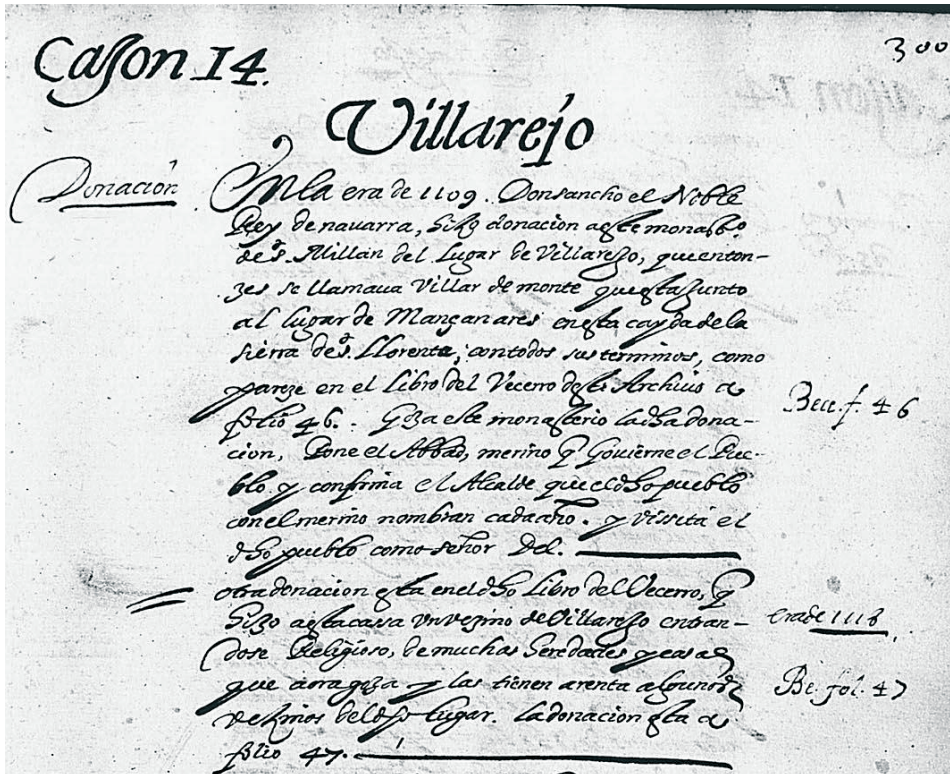 Cajon 14.
300
Villarejo
Donación
En la era de 1109. Don sancho el Noble
Rey de navarra, hizo donacion a este monasto.
de s. Millan del Lugar de Villarejo, que enton-
zes se llamaua Villar de monte que esta junto
al lugar de Mançanares en esta cayda de la
sierra de s. Llorente, con todos sus terminos, como
pareze en el Libro del Vecerro deste Archiuo a
folio 46. Goza este monasterio la dha dona-
cion, Pone el Abbad, merino q Gouierne el Pue-
blo y confirma el Alcalde que el dho pueblo
con el merino nombran cada año. y vissita el
dho pueblo como señor Del.
Bece. f. 46
otra donacion esta en el dho Libro del Vecerro, q
hizo a esta cassa vn vezino de Villarejo entran-
dose Religioso, de muchas heredades y casas
que aora goza y las tienen a renta algunos
vezinos del dho lugar. La donacion esta a
folio 47.
era de 1118
Be. fol. 47